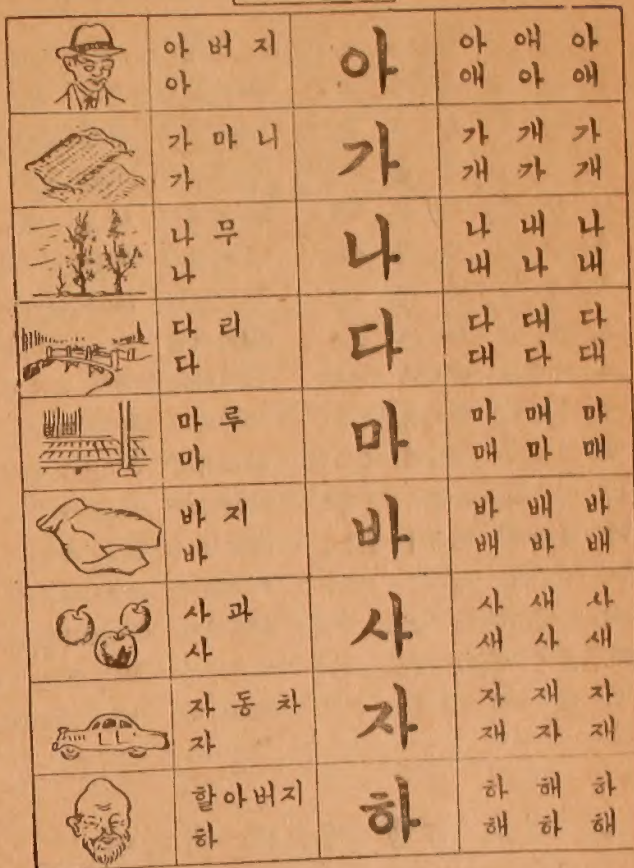 아버지
아
아
아 애 아
애 아 애
가마니
가
가
가 개 가
개 가 개
나무
나
나
나 내 나
내 나 내
다리
다
다
다 대 다
대 다 대
마루
마
마
마 매 마
매 마 매
바지
바
바
바 배 바
배 바 배
사과
사
사
사 새 사
새 사 새
자동차
자
자
자 재 자
재 자 재
할아버지
하
하
하 해 하
해 하 해